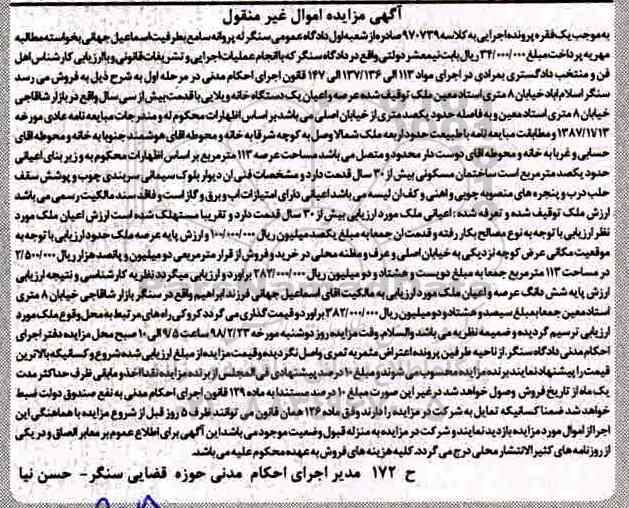 آگهی مزایده اموال غیر منقول
به موجب یک فقره پرونده اجرایی به کلاسه ۹۷۰۷۳۹ صادره از شعبه اول دادگاه عمومی سنگر له پروانه سامع بطرفیت اسماعیل جهانی بخواسته مطالبه
مهریه پرداخت مبلغ ۳۴/۰۰۰/۰۰۰ ریال بابت نیمعشر دولتی واقع در دادگاه سنگر که با انجام عملیات اجرایی و تشریفات قانونی و با ارزیابی کارشناس اهل
فن و منتخب دادگستری بمرادی در اجرای مواد ۱۱۳ الی ۱۳۷/۱۳۶ الی ۱۴۷ قانون اجرای احکام مدنی در مرحله اول به شرح ذیل به فروش می رسد
سنگر اسلام آباد خیابان ۸ متری استاد معین ملک توقیف شده عرصه و اعیان یک دستگاه خانه ویلایی با قدمت بیش از سی سال واقع در بازار شاقاجی
خیابان ۸ متری استاد معین و به فاصله حدود یکصد متری از خیابان اصلی می باشد بر اساس اظهارات محکوم له و مندرجات مبایعه نامه عادی مورخه
۱۳۸۷/۱۷/۳ و مطابقت مبایعه نامه با طبیعت حدود اربعه ملک شمالا وصل به کوچه شرقا به خانه و محوطه اقای هوشمند جنوبا به خانه و محوطه اقای
حسابی و غربا به خانه و محوطه اقای دوست دار محدود و متصل می باشد مساحت عرصه ۱۱۳ متر مربع بر اساس اظهارات محکوم به و زیر بنای اعیانی
حدود یکصد متر مربع است ساختمان مسکونی بیش از ۳۰ سال قدمت دارد و مشخصات فنی ان دیوار بلوک سیمانی سربندی چوب و پوشش سقف
حلب درب و پنجره های منصوبه چوبی و اهنی و کف ان لیسه می باشد اعیانی دارای امتیازات اب و برق و گاز است و فاقد سند مالکیت رسمی می باشد
ارزش ملک توقیف شده و تعرفه شده : اعیانی ملک مورد ارزیابی بیش از ۳۰ سال قدمت دارد و تقریبا مستهلک شده است ارزش اعیان ملک مورد
نظر ارزیابی با توجه به نوع مصالح بکار رفته و قدمت ان جمعا به مبلغ یکصد میلیون ریال ۱۰۰/۰۰۰/۰۰۰ و ارزش پایه عرصه ملک حدود ارزیابی با توجه به
موقعیت مکانی عرض کوچه نزدیکی به خیابان اصلی و عرف و مظنه محلی در خرید و فروش از قرار متر مربعی دو میلیون و پانصد هزار ریال ۲/۵۰۰/۰۰۰
در مساحت ۱۱۳ متر مربع جمعا به مبلغ دویست و هشتاد و دو میلیون ریال ۲۸۲/۰۰۰/۰۰۰ براورد و ارزیابی میگردد نظریه کارشناسی و نتیجه ارزیابی
ارزش پایه شش دانگ عرصه و اعیان ملک مورد ارزیابی به مالکیت اقای اسماعیل جهانی فرزند ابراهیم واقع در سنگر بازار شاقاجی خیابان ۸ متری
استاد معین جمعا به مبلغ سیصد و هشتاد و دو میلیون ریال ۳۸۲/۰۰۰/۰۰۰ براورد و قیمت گذاری می گردد کروکی راه های مرتبط به محل وقوع ملک مورد
ارزیابی ترسیم گردیده و ضمیمه نظریه می باشد والسلام وقت مزایده روز دوشنبه مورخه ۹۸/۲/۲۳ ساعت ۹/۵ الی ۱۰ صبح محل مزایده دفتر اجرای
احکام مدنی دادگاه سنگر. از ناحیه طرفین پرونده اعتراض مثمر به ثمری واصل نگردیده و قیمت مزایده از مبلغ ارزیابی شده شروع و کسانیکه بالاترین
قیمت را پیشنهاد نمایند برنده مزایده محسوب می شوند و مبلغ ۱۰ درصد پیشنهادی فی المجلس از برنده مزایده نقدا اخذ و مابقی ظرف حداکثر مدت
یک ماه از تاریخ فروش وصول خواهد شد در غیر این صورت مبلغ ۱۰ درصد مستندا به ماده ۱۲۹ قانون اجرای احکام مدنی به نفع صندوق دولت ضبط
خواهد شد ضمنا کسانیکه تمایل به شرکت در مزایده را دارند وفق ماده ۱۲۶ همان قانون می توانند ظرف ۵ روز قبل از شروع مزایده با هماهنگی این
اجرا از اموال مورد مزایده بازدید نمایند و شرکت در مزایده به منزله قبول وضعیت موجود می باشد این آگهی برای اطلاع عموم بر معابر الصاق و در یکی
از روزنامه های کثیرالانتشار محلی درج می گردد. کلیه هزینه های فروش به عهده محکوم علیه می باشد.
ح ۱۷۲ مدیر اجرای احکام مدنی حوزه قضایی سنگر- حسن نیا